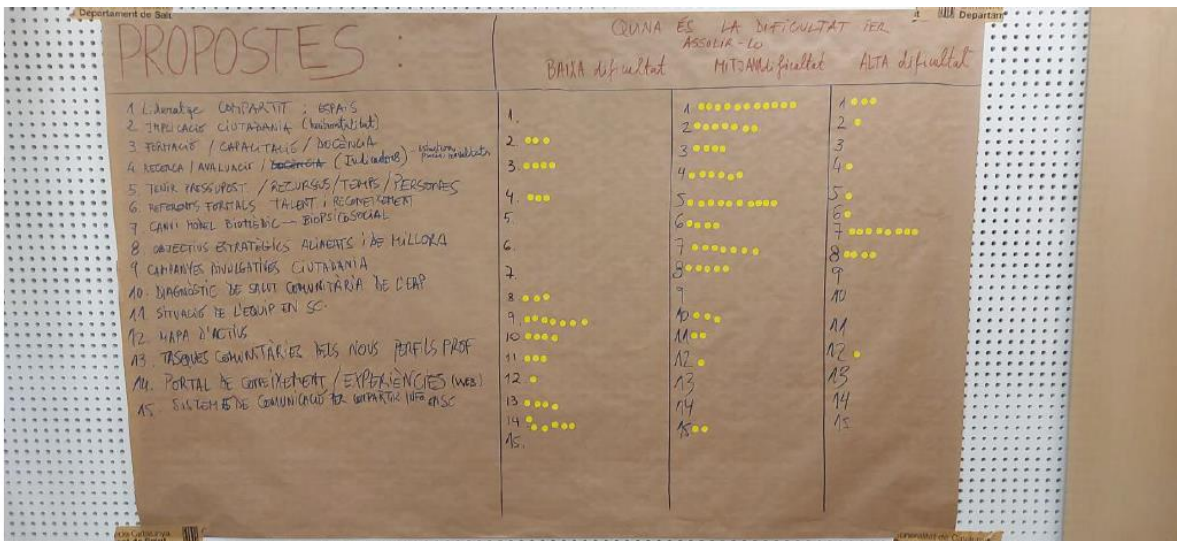 Departament de Salut
Departam
PROPOSTES :
QUINA ÉS LA DIFICULTAT PER
ASSOLIR-LO
BAIXA dificultat
MITJANA dificultat
ALTA dificultat
1 Lideratge COMPARTIT i ESPAIS
2 IMPLICACIÓ CIUTADANIA (horitzontalitat)
3 FORMACIÓ / CAPACITACIÓ / DOCÈNCIA
4 RECERCA / AVALUACIÓ / DOCÈNCIA (Indicadors)
5 TENIR PRESSUPOST / RECURSOS / TEMPS / PERSONES
6. REFERENTS FORMALS TALENT i RECONEIXEMENT
7 CANVI MODEL BIOMÈDIC — BIOPSICOSOCIAL
8 OBJECTIUS ESTRATÈGICS ALINEATS i DE MILLORA
9 CAMPANYES DIVULGATIVES CIUTADANIA
10. DIAGNÒSTIC DE SALUT COMUNITÀRIA DE L'EAP
11 SITUACIÓ DE L'EQUIP EN SC.
12. MAPA D'ACTIUS
13. TASQUES COMUNITÀRIES DELS NOUS PERFILS PROF
14. PORTAL DE CONEIXEMENT / EXPERIÈNCIES (WEB)
15. SISTEMES DE COMUNICACIÓ PER COMPARTIR INFO
1.
2
3.
4.
5.
6.
7.
8
9.
10
11
12
13
14
15.
1
2
3
4
5
6
7
8
9
10
11
12
13
14
15
1
2
3
4
5
6
7
8
9
10
11
12
13
14
15